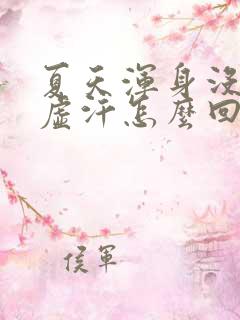 夏天渾身沒
虛汗怎麼回
侯軍